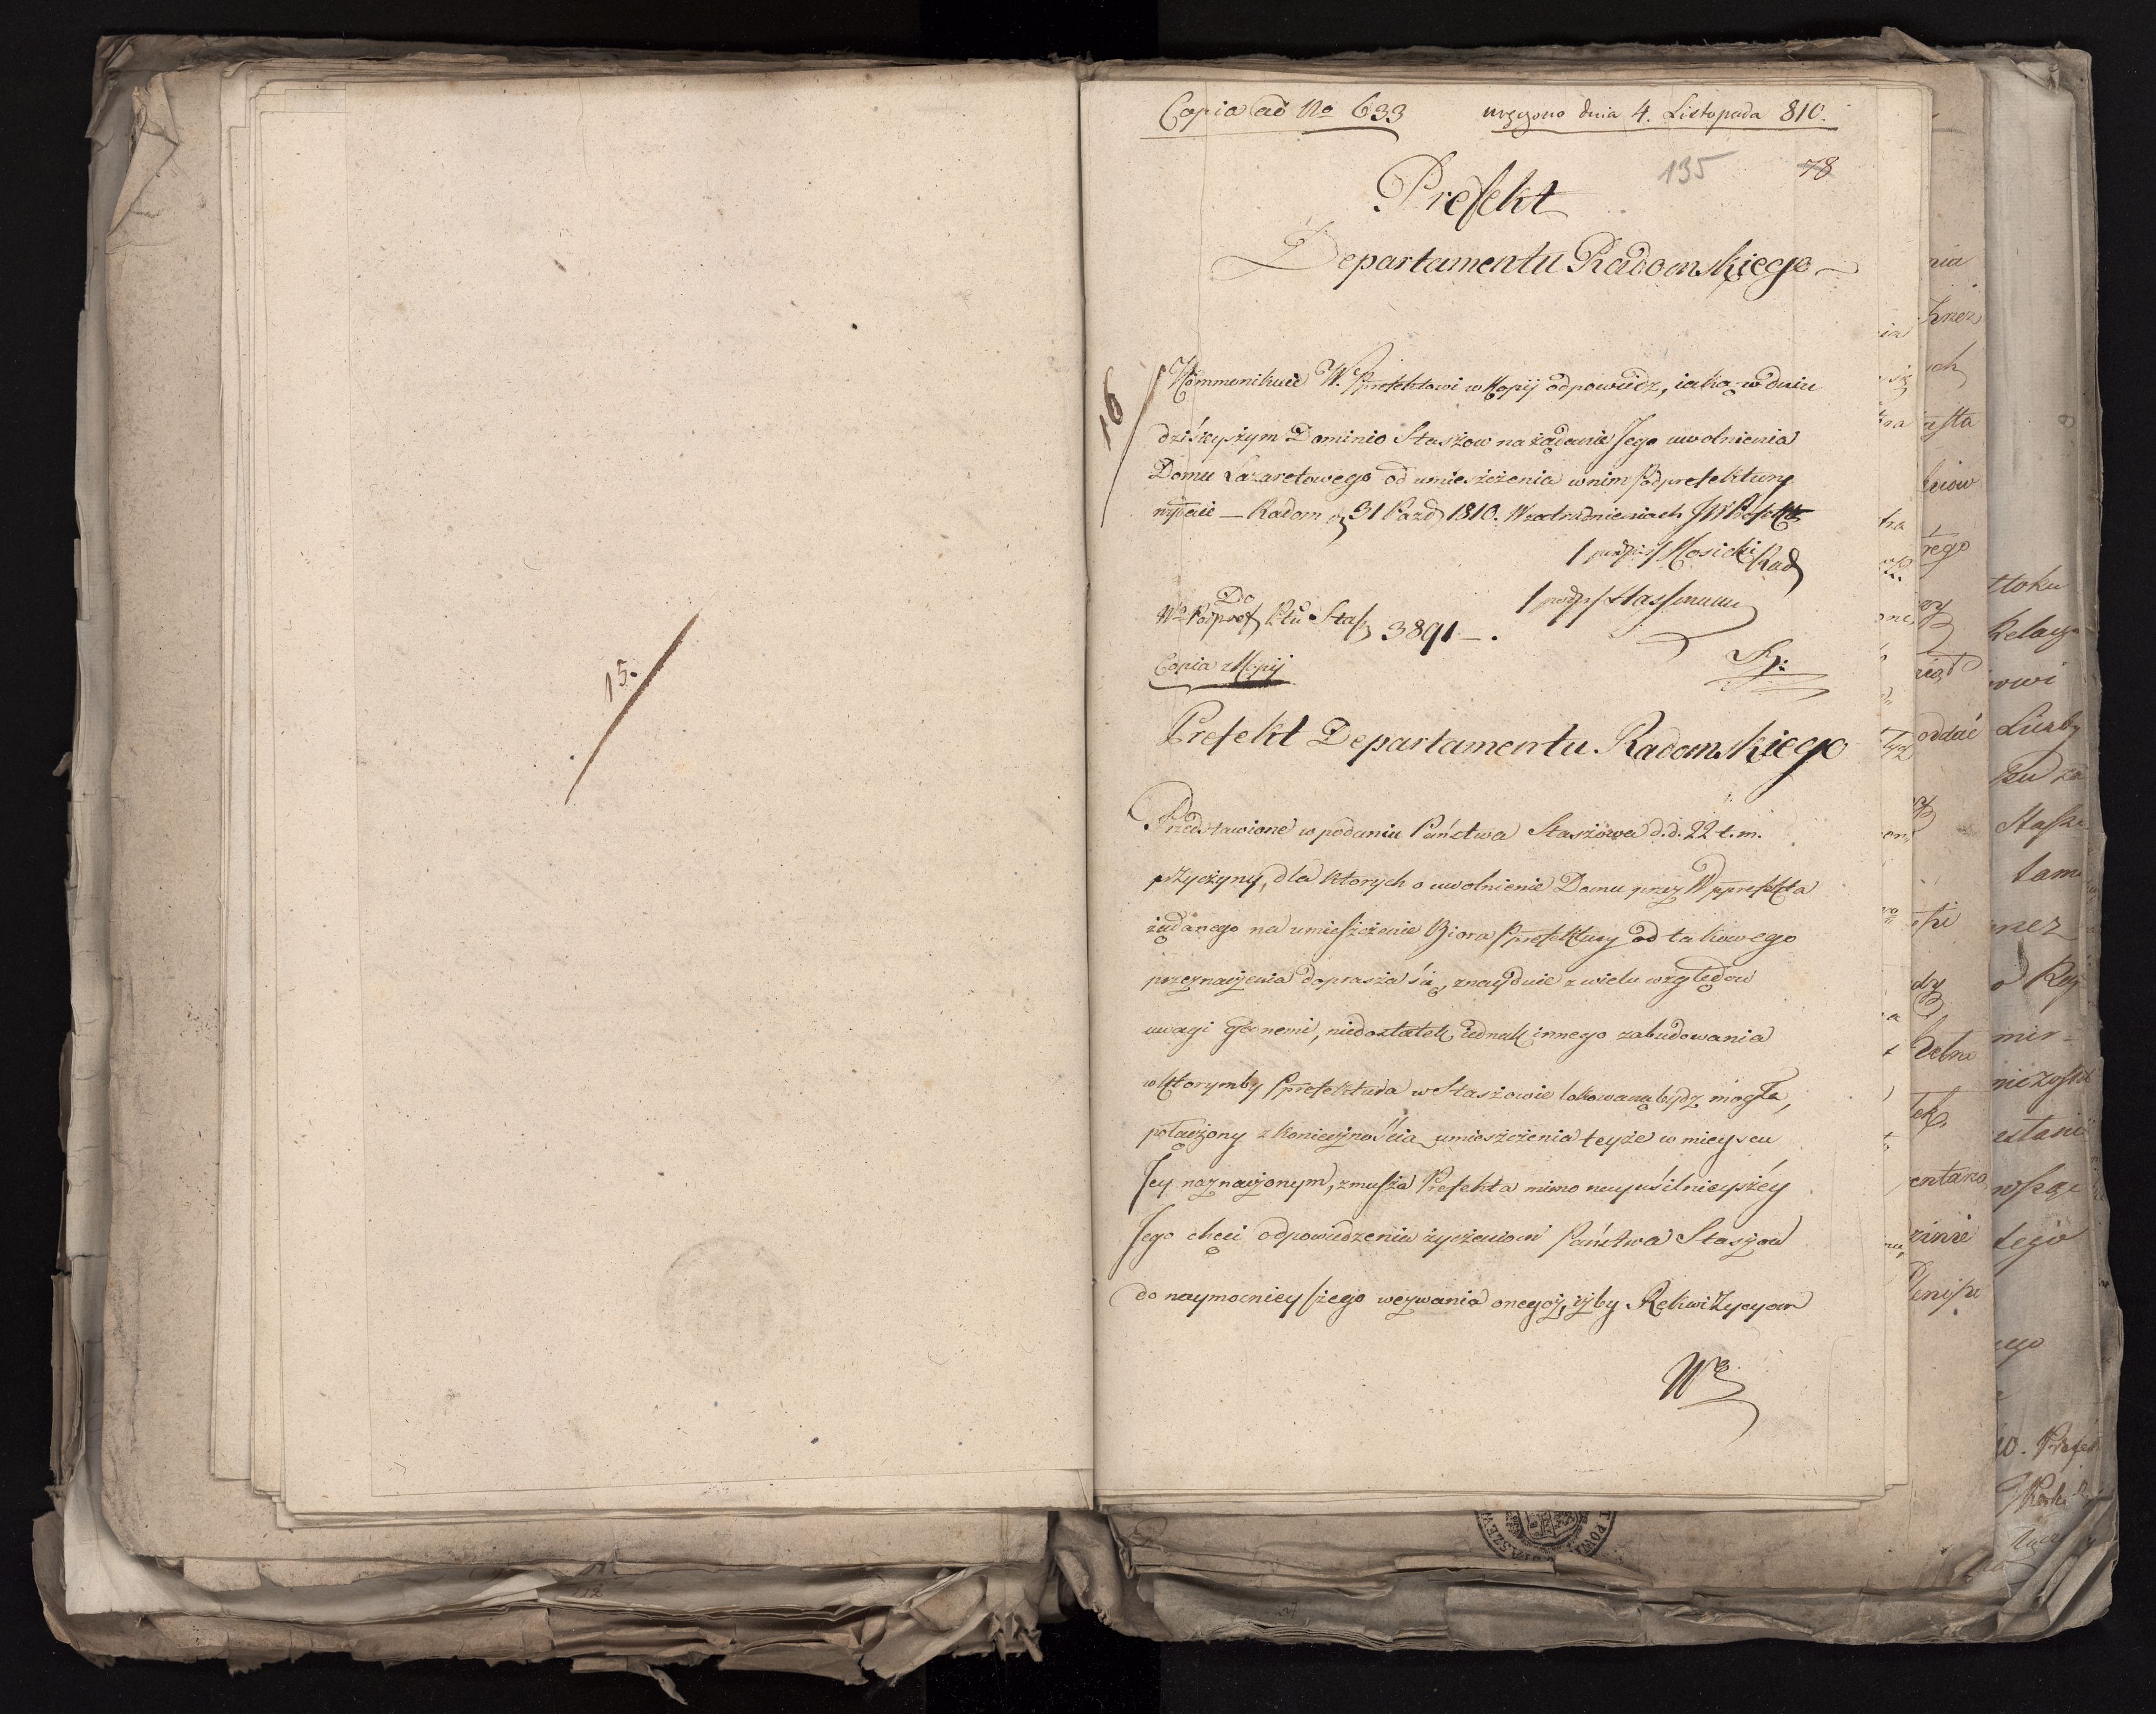 15.
Copia ad No 633
wręczono dnia 4. Listopada 810.
135 78
Prefekt
Departamentu Radomskiego
16
Kommunikuie W. Pprefektowi w Kopij odpowiedz, iaką w dniu
dzisieyszym Dominio Staszow na żądanie Jego uwolnienia
Domu Lazaretowego od umieszczenia w nim Podprefektury
wydaie — Radom 31 Pazd 1810. W zatrudnieniach JW Prefekta
/podpis/ Kosicki Rad
/podp/ Hassmann
Do
Wo Podpref Ptu Stasz 3891 —.
Copia z Kopij
Prefekt Departamentu Radomskiego
Przedstawione w podaniu Państwa Staszowa d.d. 22 t.m.
przyczyny, dla ktorych o uwolnienie Domu przez W Pprefekta
żądanego na umieszczenie Biora Pprefektury od takowego
przeznaczenia doprasza się, znayduie z wielu względow
uwagi godnemi, niedostatek iednak innego zabudowania
w ktorymby Pprefektura w Staszowie lokowaną bydz mogła,
połączony z koniecznością umieszczenia teyże w mieyscu
Jey naznaczonym, zmusza Prefekta mimo nayusilnieyszéy
Jego chęci odpowiedzenia życzeniom Państwa Staszow
do naymocnieyszego wezwania onegoż, iżby Rekwizycyom